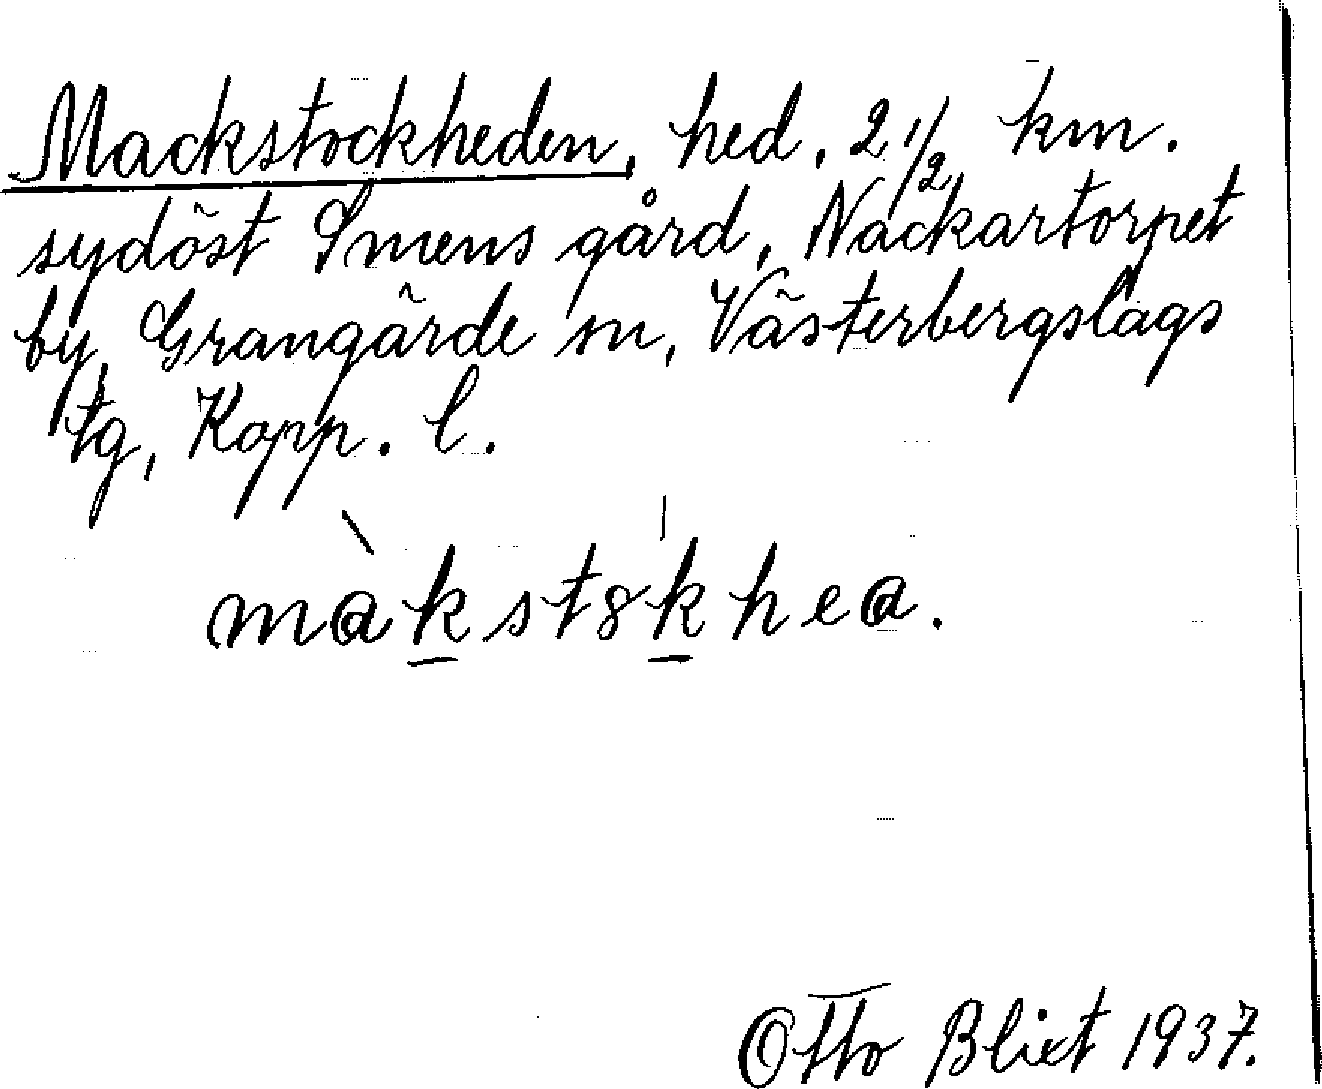 Mackstockheden, hed, 2 1/2 km.
sydöst Smens gård, Nackartorpet
by, Grangärde sn, Västerbergslags
tg, Kopp. l.
mɑ̀k̲st8k̲heɑ.
Otto Blixt 1937.